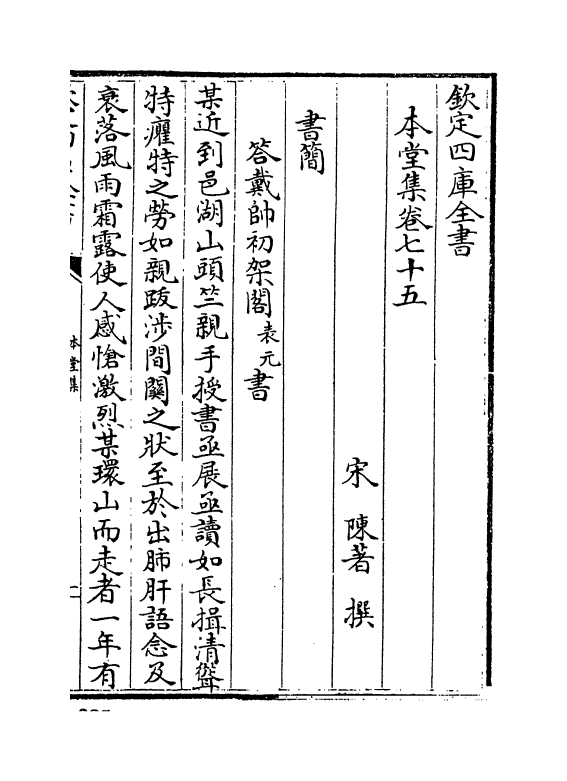 欽定四庫全書
本堂集卷七十五
宋 陳著 撰
書簡
答戴帥初架閣表元書
某近到邑湖山頭竺親手授書亟展亟讀如長揖清聳
特癯特之勞如親跋涉間關之狀至於出肺肝語念及
衰落風雨霜露使人感愴激烈某環山而走者一年有
本堂集